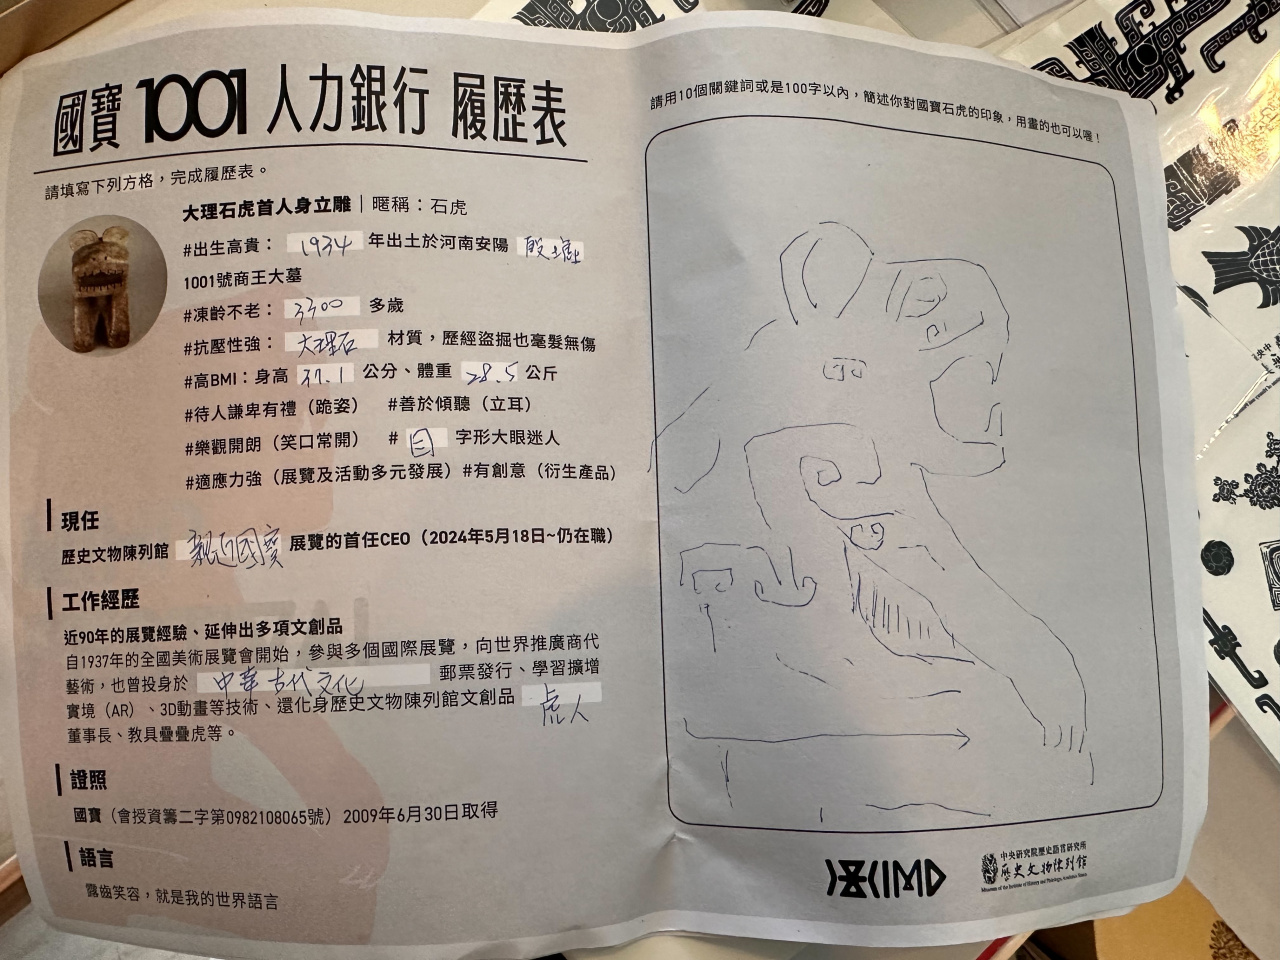 國寶1001人力銀行 履歷表
請填寫下列方格，完成履歷表。
大理石虎首人身立雕｜暱稱：石虎
#出生高貴： 1934 年出土於河南安陽 殷墟
1001號商王大墓
#凍齡不老： 3300 多歲
#抗壓性強： 大理石 材質，歷經盜掘也毫髮無傷
#高BMI：身高 37.1 公分、體重 28.5 公斤
#待人謙卑有禮（跪姿） #善於傾聽（立耳）
#樂觀開朗（笑口常開） # 目 字形大眼迷人
#適應力強（展覽及活動多元發展）#有創意（衍生產品）
現任
歷史文物陳列館 親近國寶 展覽的首任CEO（2024年5月18日~仍在職）
工作經歷
近90年的展覽經驗、延伸出多項文創品
自1937年的全國美術展覽會開始，參與多個國際展覽，向世界推廣商代
藝術，也曾投身於 中華古代文化 郵票發行、學習擴增
實境（AR）、3D動畫等技術、還化身歷史文物陳列館文創品 虎人
董事長、教具疊疊虎等。
證照
國寶（會授資籌二字第0982108065號）2009年6月30日取得
語言
露齒笑容，就是我的世界語言
請用10個關鍵詞或是100字以內，簡述你對國寶石虎的印象，用畫的也可以喔！
中央研究院歷史語言研究所
歷史文物陳列館
Museum of the Institute of History and Philology, Academia Sinica